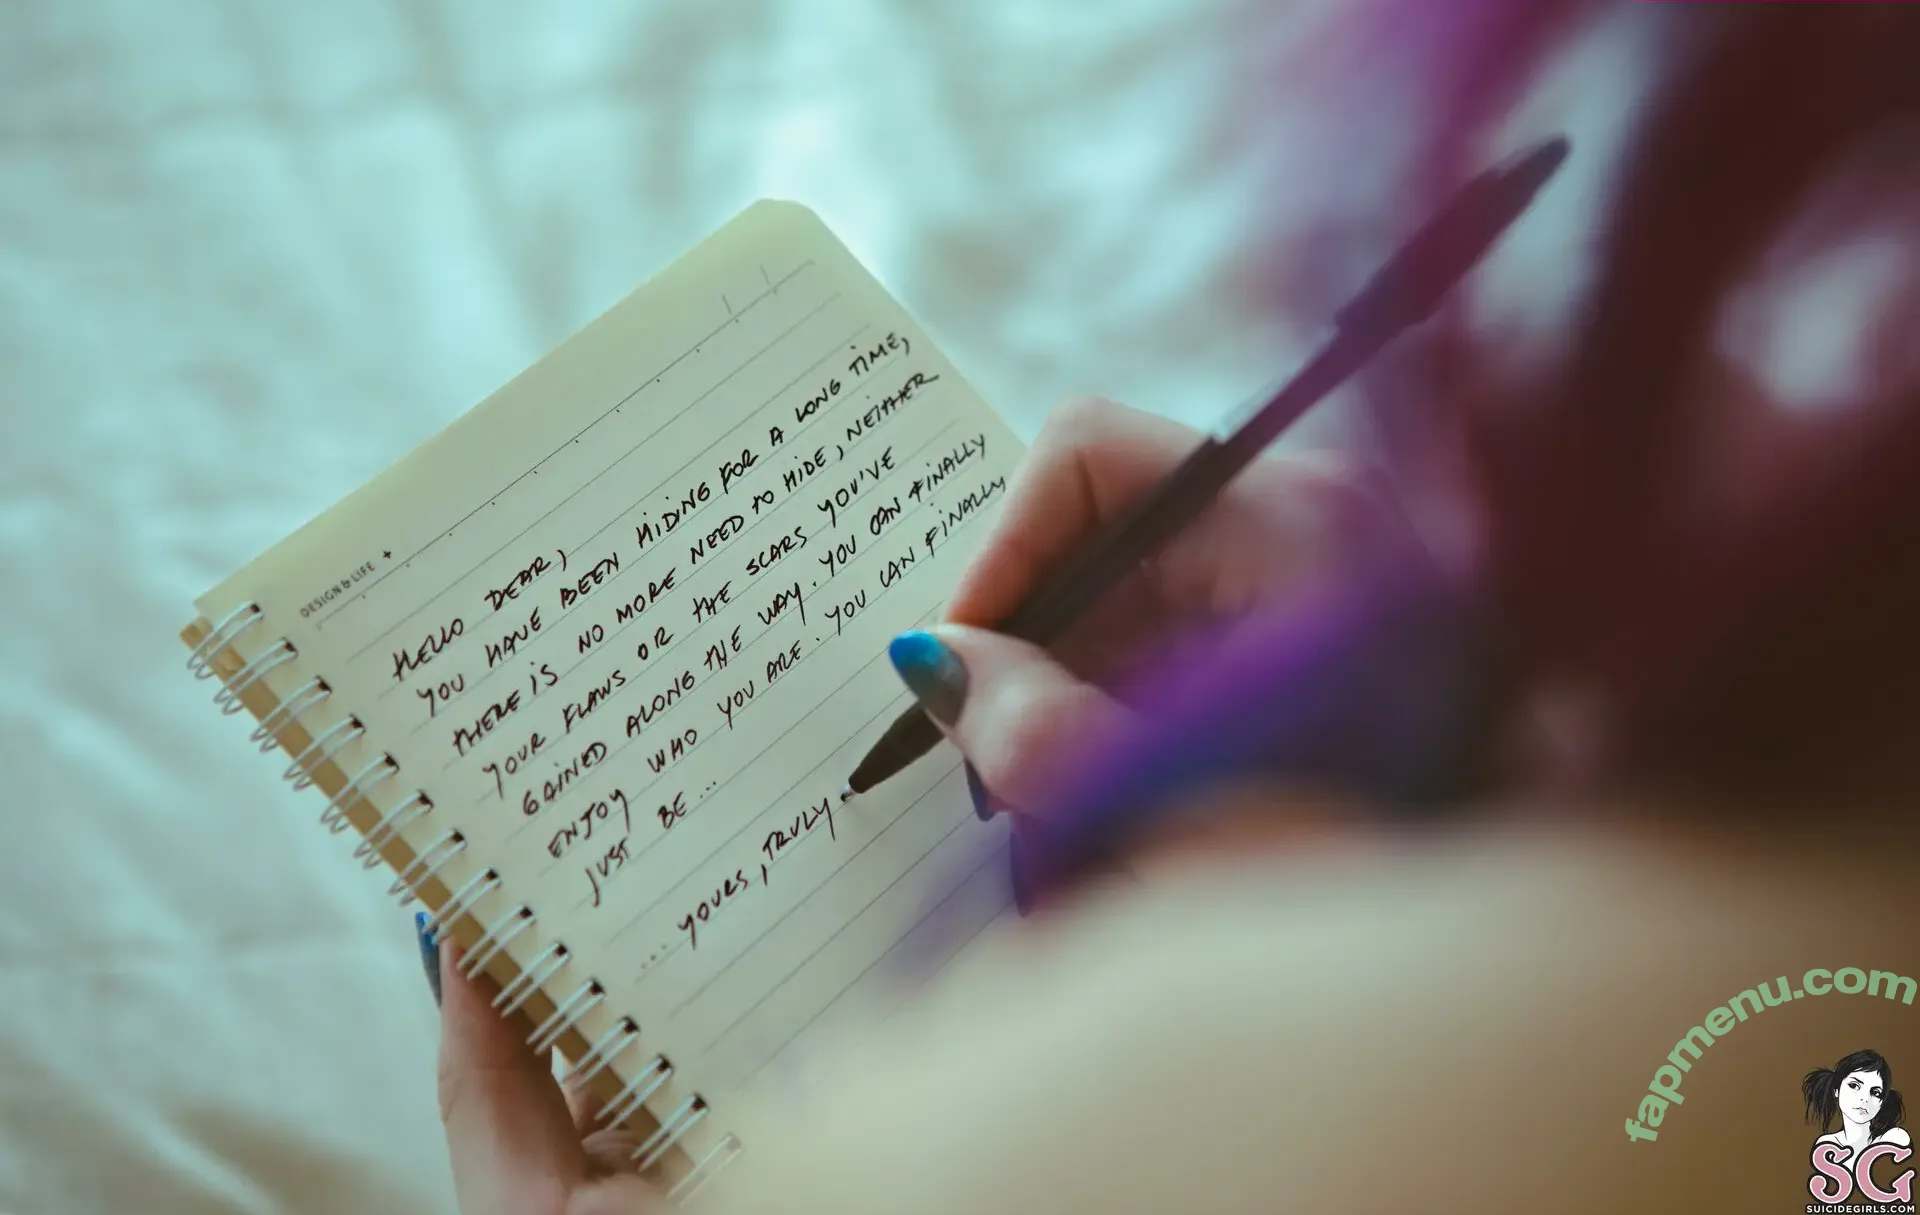 DESIGN & LIFE +
HELLO DEAR,
YOU HAVE BEEN HIDING FOR A LONG TIME,
THERE IS NO MORE NEED TO HIDE, NEITHER
YOUR FLAWS OR THE SCARS YOU'VE
GAINED ALONG THE WAY. YOU CAN FINALLY
ENJOY WHO YOU ARE. YOU CAN FINALLY
JUST BE ...
... YOURS, TRULY
fapmenu.com
SG
SUICIDEGIRLS.COM